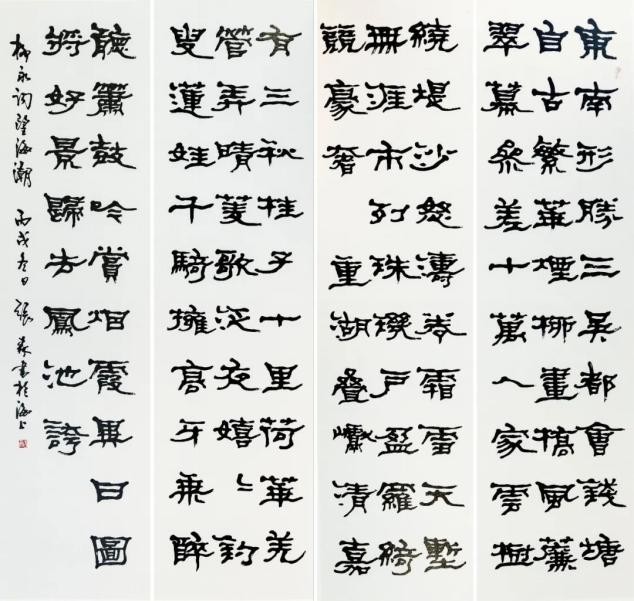 東南形勝三吳都會錢塘
自古繁華煙柳畫橋風簾
翠幕參差十萬人家雲樹
繞堤沙怒濤卷霜雪天塹
無涯市列珠璣戶盈羅綺
競豪奢 重湖疊巘清嘉
有三秋桂子十里荷華羌
管弄晴菱歌泛夜嬉〻釣
叟蓮娃千騎擁高牙乘醉
聽簫鼓吟賞烟霞異日圖
將好景歸去鳳池誇
柳永詞望海潮 丙戌冬日 張森書於海上